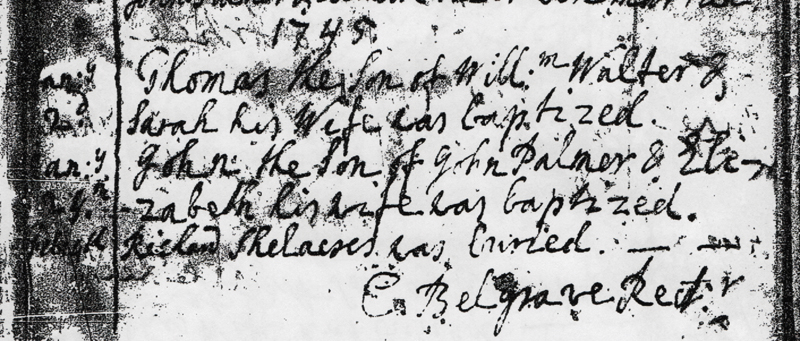 1745
Jan:y Thomas the Son of Will:m Walter &
2 Sarah his Wife was baptized.
Jan:y John the Son of John Palmer & Eli-
-zabeth his wife was baptized.
Richard was buried.
C. Belgrave Rectr